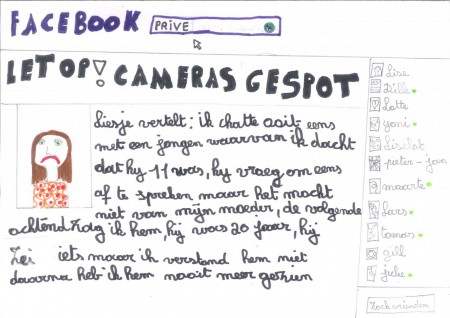 FACEBOOK
PRIVE
LET OP! CAMERAS GESPOT
Liesje vertelt: ik chatte ooit eens
met een jongen waarvan ik dacht
dat hy 11 was, hy vroeg om eens
af te spreken maar het mocht
niet van mijn moeder, de volgende
achtend zag ik hem, hij was 20 jaar, hij
Zei iets maar ik verstond hem niet
daarna heb ik hem nooit meer gezien
Lise
Dille
Lotte
yoni
Liselot
pieter-jan
maarte
lars
tomas
gill
julie
Zoek vrienden